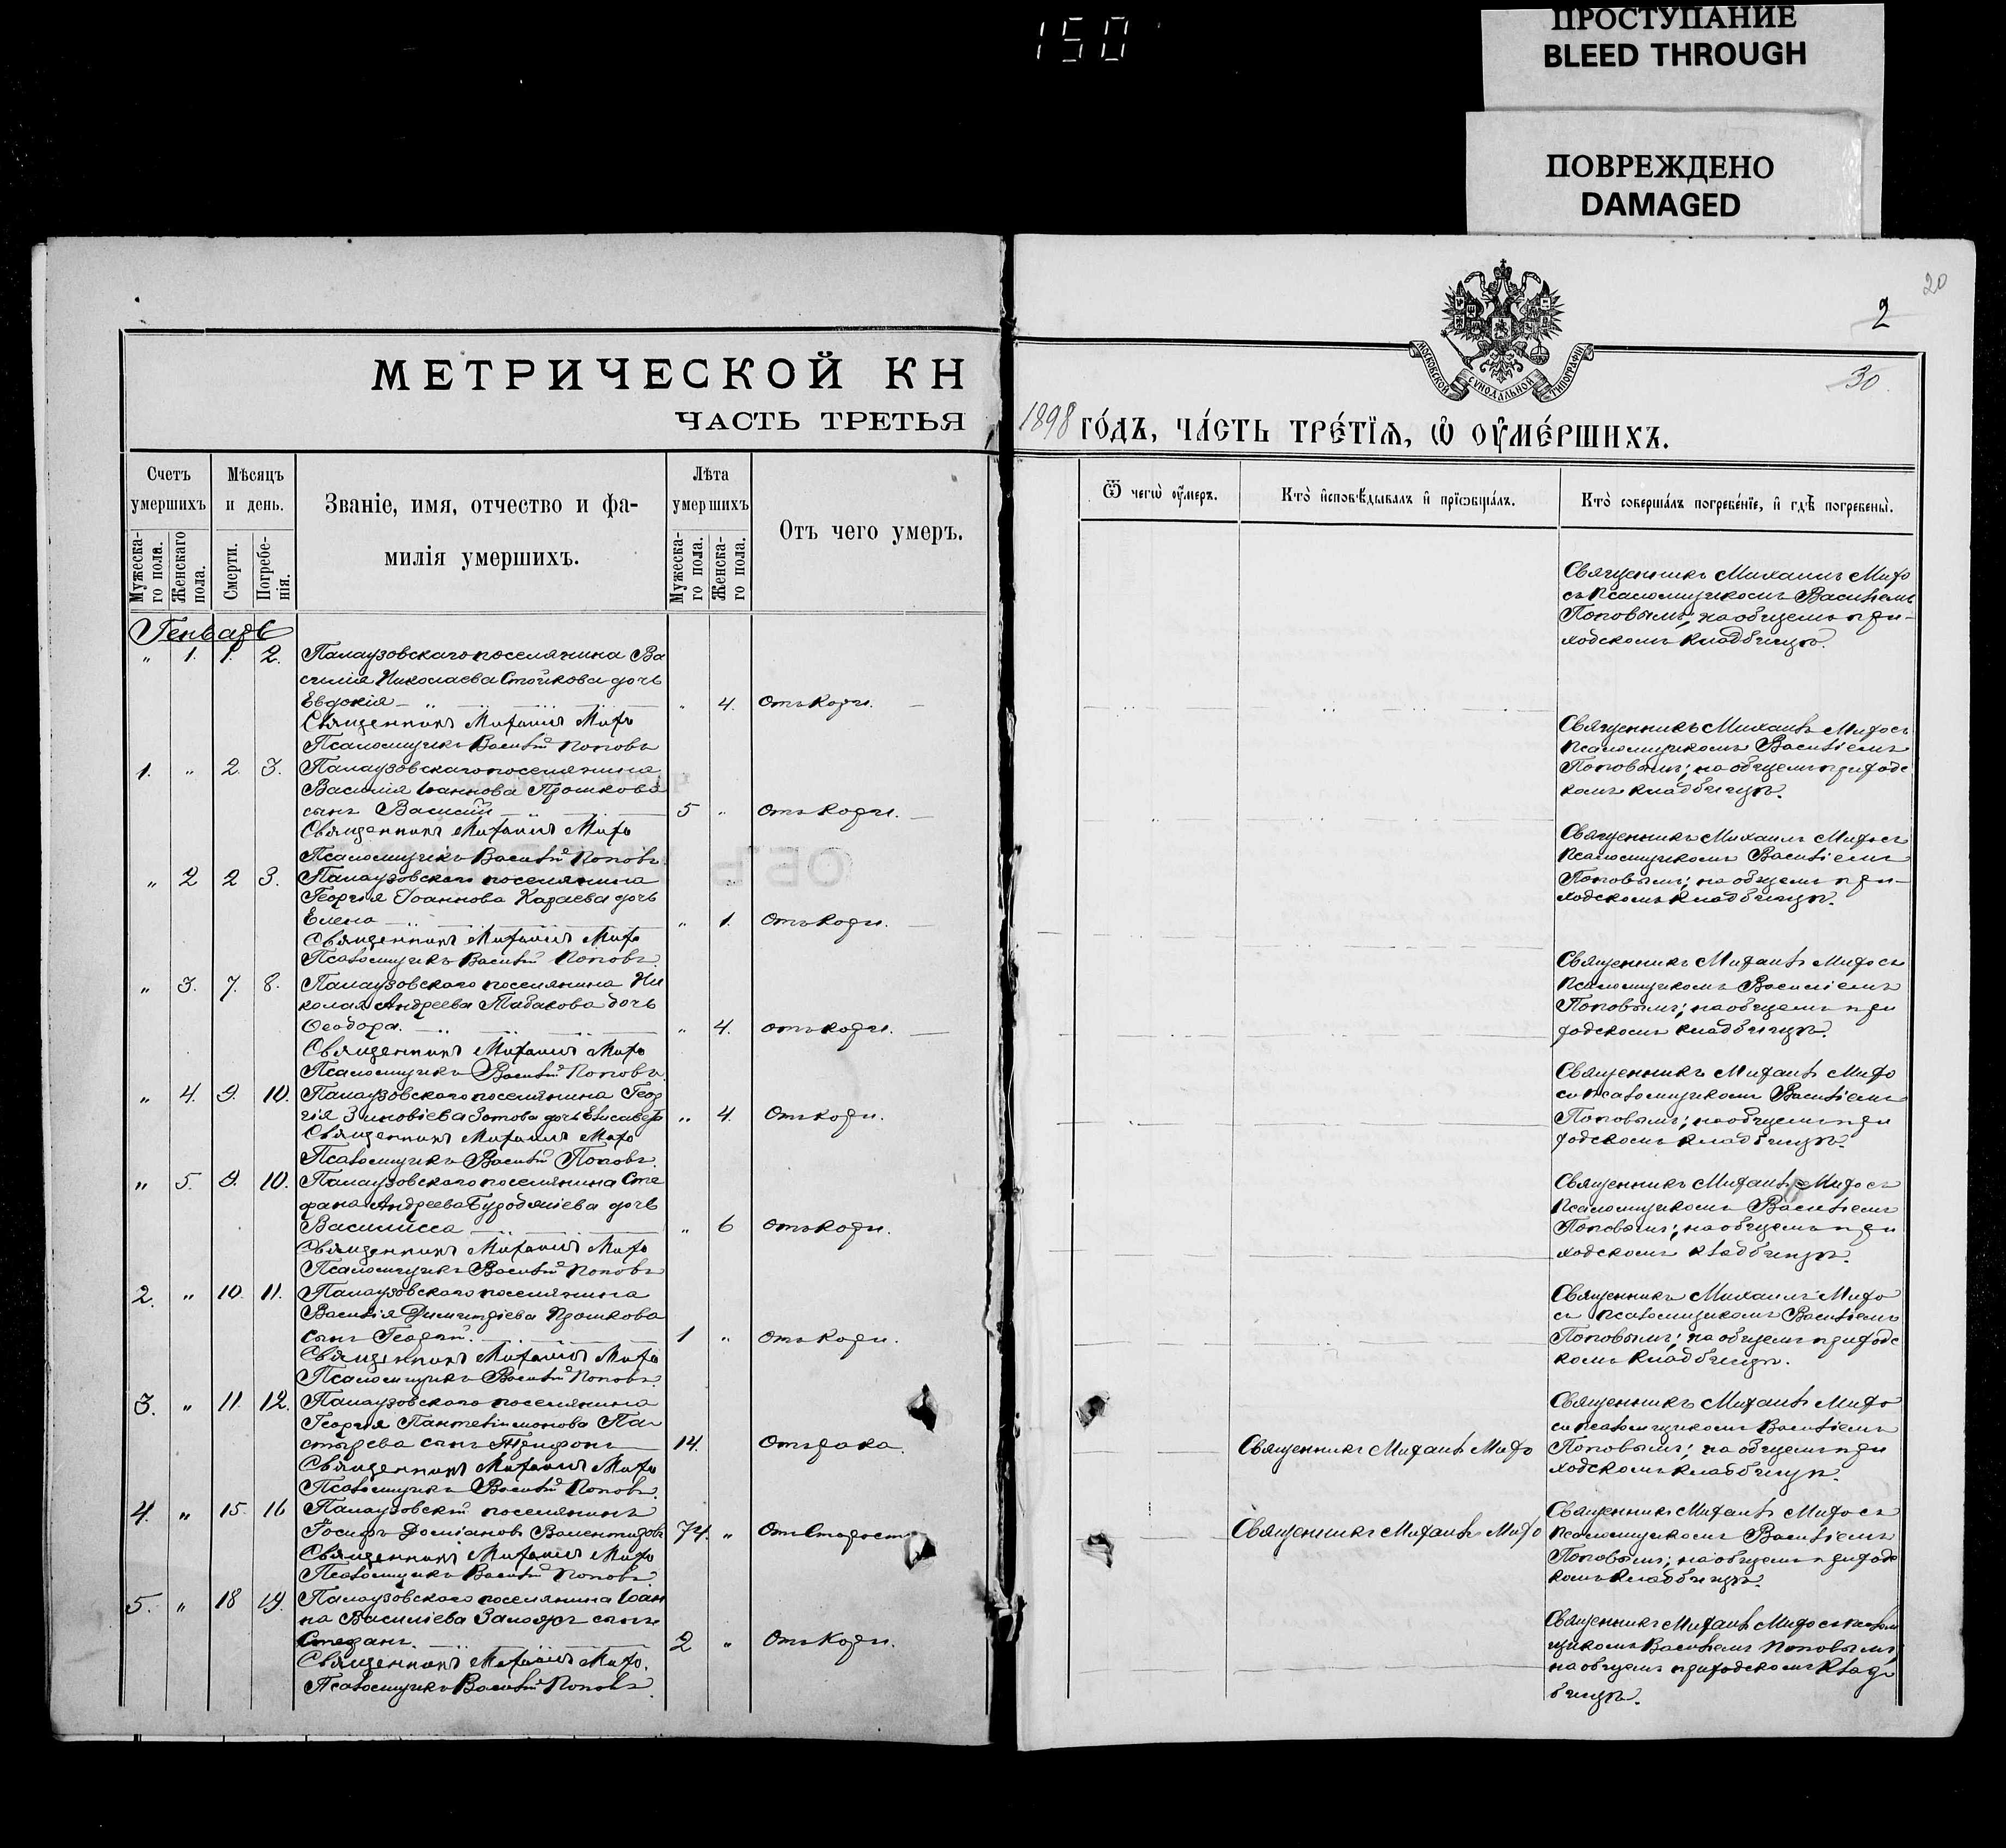 150
ПРОСТУПАНИЕ
BLEED THROUGH
ПОВРЕЖДЕНО
DAMAGED
20
2
30
МЕТРИЧЕСКОЙ КН
ЧАСТЬ ТРЕТЬЯ
Счетъ умершихъ
Мужеска-го пола.
Женскаго пола.
Мѣсяцъ и день.
Смерти.
Погребе-нія.
Званіе, имя, отчество и фа-
милія умершихъ.
Лѣта умершихъ
Мужеска-го пола.
Женска-го пола.
Отъ чего умеръ.
Генварь
" 1. 1. 2. Палаузовскаго поселянина Ва
силія Николаева Стойкова дочь
Евдокія " 4. Отъ кори.
Священникъ Михаилъ Мифо
Псаломщикъ Василій Поповъ
1. " 2. 3. Палаузовскаго поселянина
Василія Іоаннова Прошкова
сынъ Василій 5 " Отъ кори.
Священникъ Михаилъ Мифо
Псаломщикъ Василій Поповъ
" 2 2 3. Палаузовскаго поселянина
Георгія Іоаннова Караева дочь
Елена " 1. Отъ кори.
Священникъ Михаилъ Мифо
Псаломщикъ Василій Поповъ
" 3. 7. 8. Палаузовскаго поселянина Ни
колая Андреева Табакова дочь
Ѳеодора. " 4. отъ кори.
Священникъ Михаилъ Мифо
Псаломщикъ Василій Поповъ
" 4. 9. 10. Палаузовскаго поселянина Геор
гія Зиновіева Зотова дочь Елисавета " 4. Отъ кори.
Священникъ Михаилъ Мифо
Псаломщикъ Василій Поповъ.
" 5. 9. 10. Палаузовскаго поселянина Сте
фана Андреева дочь
Василисса " 6 отъ кори.
Священникъ Михаилъ Мифо
Псаломщикъ Василій Поповъ
2. " 10. 11. Палаузовскаго поселянина
Василія Димитріева Прошкова
сынъ Георгій. 1 " Отъ кори.
Священникъ Михаилъ Мифо
Псаломщикъ Василій Поповъ.
3. " 11. 12. Палаузовскаго поселянина
Георгія Пантелеимонова Па
стырева сынъ Трифонъ 14. Отъ рака.
Священникъ Михаилъ Мифо
Псаломщикъ Василій Поповъ.
4. " 15. 16 Палаузовскій поселянинъ
Іосифъ Доміановъ 74. " От Старост
Священникъ Михаилъ Мифо
Псаломщикъ Василій Поповъ
5. " 18 19. Палаузовскаго поселянина Іоан
на Василіева сынъ
Стефанъ. 2 " Отъ Кори.
Священникъ Михаилъ Мифо.
Псаломщикъ Василій Поповъ
МОСКОВСКОЙ СѴНОДАЛЬНОЙ ТИПОГРАФІИ
1898 го́дъ, ча́сть тре́тїѧ, ѡ҆ ᲂу҆ме́ршихъ.
Ѿ чегѡ̀ ᲂу҆́меръ.
Кто̀ и҆сповѣ́дывалъ и҆ прїѡбща́лъ.
Кто̀ соверша́лъ погребе́нїе, и҆ гдѣ̀ погребены̀.
Священникъ Михаилъ Мифо
съ Псаломщикомъ Василіемъ
Поповымъ; на общемъ при-
ходскомъ кладбищѣ.
Священникъ Михаилъ Мифо съ
псаломщикомъ Василіемъ
Поповымъ; на общемъ приходс
комъ кладбищѣ.
Священникъ Михаилъ Мифо съ
псаломщикомъ Василіемъ
Поповымъ; на общемъ при-
ходскомъ кладбищѣ.
Священникъ Михаилъ Мифо съ
псаломщикомъ Василіемъ
Поповымъ; на общемъ при
ходскомъ кладбищѣ.
Священникъ Михаилъ Мифо
съ псаломщикомъ Василіемъ
Поповымъ; на общемъ при
ходскомъ кладбищѣ.
Священникъ Михаилъ Мифо съ
псаломщикомъ Василіемъ
Поповымъ; на общемъ при
ходскомъ кладбищѣ.
Священникъ Михаилъ Мифо
съ псаломщикомъ Василіемъ
Поповымъ; на общемъ приходс
комъ кладбищѣ.
Священникъ Михаилъ Мифо
съ псаломщикомъ Василіемъ
Священникъ Михаилъ Мифо Поповымъ; на общемъ при
ходскомъ кладбищѣ.
Священникъ Михаилъ Мифо съ
Священникъ Михаилъ Мифо псаломщикомъ Василіемъ
Поповымъ; на общемъ приходс
комъ кладбищѣ.
Священникъ Михаилъ Мифо съ псалом
щикомъ Василіемъ Поповымъ;
на общемъ приходскомъ клад
бищѣ.